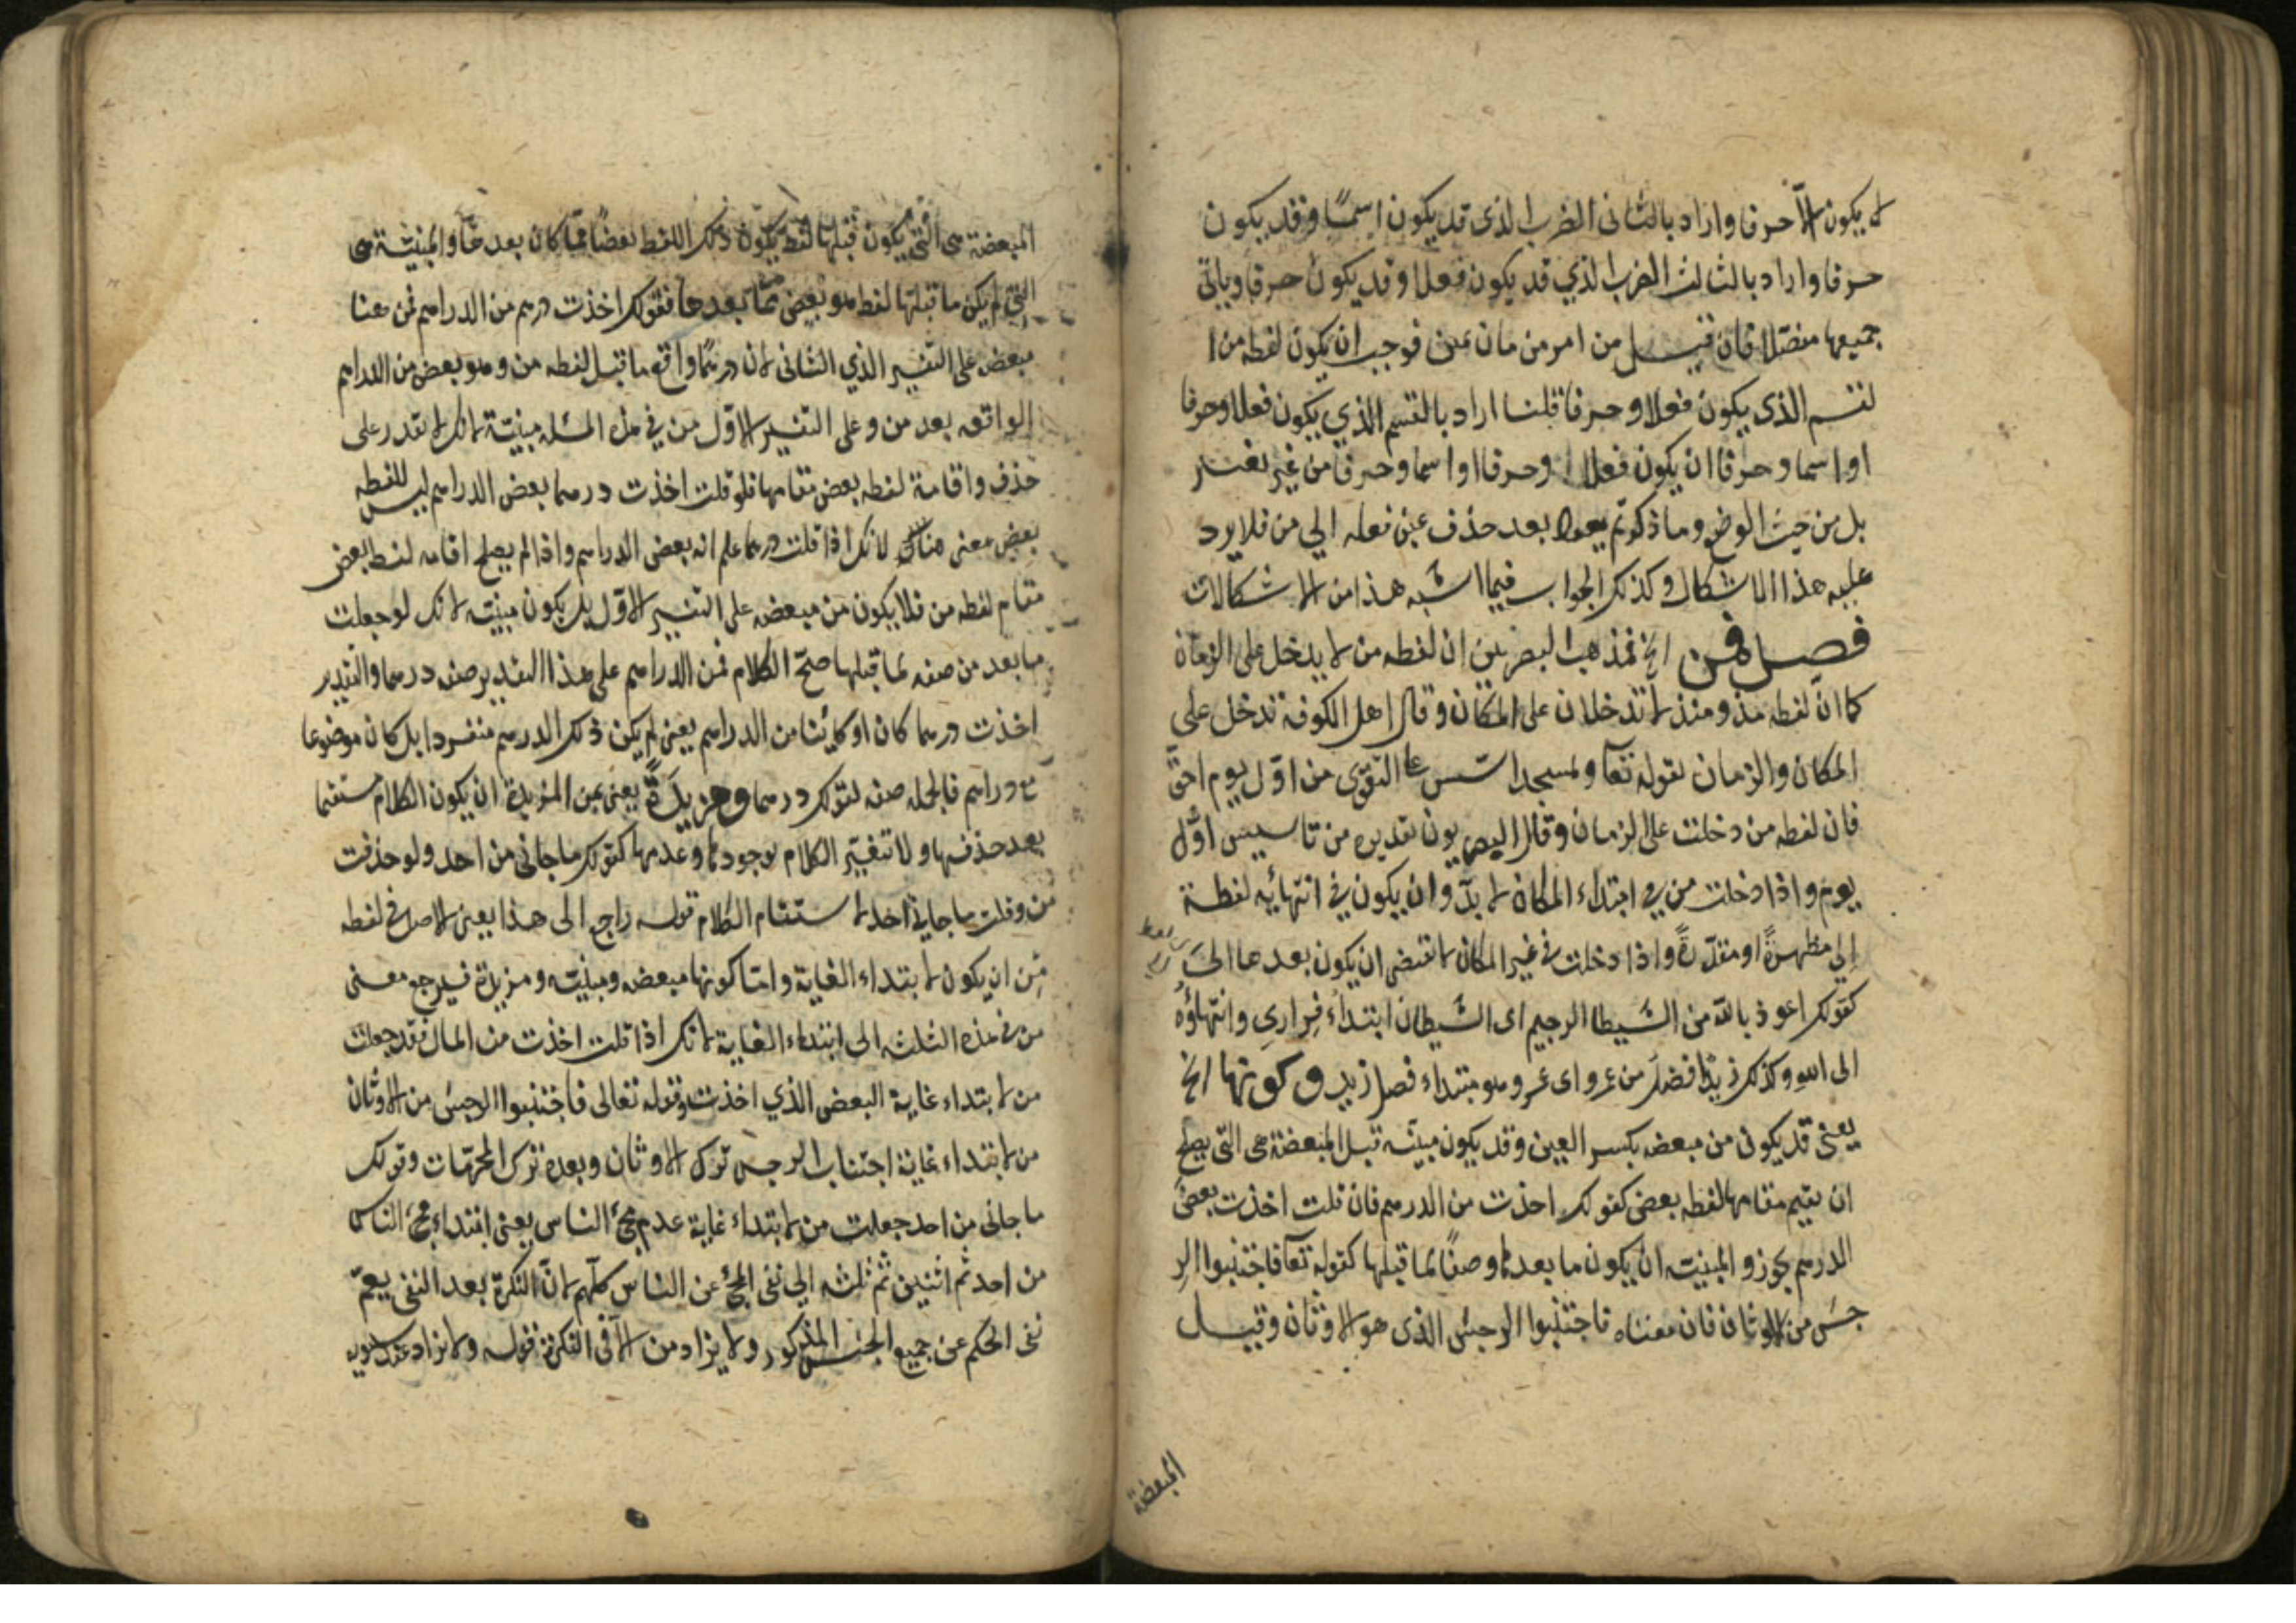 لا يكون الا حرفا واراد بالثانى الضرب الذى قد يكون اسمًا وقد يكون
حرفا واراد بالثالث الضرب الذي قد يكون فعلا وقد يكون حرفا وياتى
جميعها مفصّلا فان قيل من امر من مان يمين فوجب ان يكون لفظه من ا
لقسم الذى يكون فعلا وحرفا قلنا اراد بالقسم الذي يكون فعلا وحرفا
او اسما وحرفا ان يكون فعلا وحرفا او اسما وحرفا من غير تغيير
بل من حيث الوضع وما ذكرتم بعد حذف عين فعله الي من فلا يرد
عليه هذا الاشكال وكذلك الجواب فيما اشبه هذا من الاشكالات
فصل فمن الخ فمذهب البصريين ان لفظه من لا يدخل على الزمان
كما انّ لفظه مذ ومنذ لا تدخلان على المكان وقال اهل الكوفة تدخل على
المكان والزمان لقوله تعا ولمسجد اسّس على التقوى من اوّل يوم احقّ
فان لفظه من دخلت على الزمان وقال البصريون تقديره من تاسيس اوّل
يوم واذا دخلت من في ابتداء المكان لا بدّ وان يكون في انتهائيه لفظة
إلى مظهرةً او مقدّرةً واذا دخلت في غير المكان لا تقتضى ان يكون بعدها الى
كقولك اعوذ بالله من الشيطا الرجيم اى الشيطان ابتداءُ فِرارى وانتهاؤُه
الى الله وكذلك زيدٌ افضل من عمرو اى عمرو هو مبتداء فصل زيد وكونها الخ
يعنى قد يكون من مبعضه بكسر العين وقد يكون مبينه قبل المبعضة هى التى يصلح
ان يقيم مقامها لفظه بعض كقولك اخذت من الدرهم فان قلت اخذت بعض
الدرهم يجوز والمبينه ان يكون ما بعدها وصفًا لما قبلها كقوله تعا فاجتنبوا الر
جس من الاوثان فان معناه فاجتنبوا الرجس الذى هو الاوثان وقيل
المبعضة
المبعضة هى التى يكون قبلها لفظ يكون ذلك اللفظ بعضًا ممّا كان بعدها والمبينة هى
التي لم يكن ما قبلها لفظ هو بعض ممّا بعدها فقولك اخذت درهم من الدراهم فمن هنا
مبعض على التفسير الذي الثانى لان درهمًا واقع ما قبل لفظه من وهو بعض من الدراهم
الواقعه بعد من وعلى التفسير الاوّل من في هذه المسئله مبينة لانك لا تقدر على
حذف واقامة لفظه بعض مقامها فلو قلت اخذت درهما بعض الدراهم ليس للفظه
بعض معنى هناك لانك اذا قلت درهما علم انه بعض الدراهم واذا لم يصلح اقامه لفظ بعض
مقام لفظه من فلا يكون من مبعضه على التفسير الاوّل بل يكون مبينه لانك لو جعلت
ما بعد من صفه لما قبلها صحّ الكلام فمن الدراهم على هذا التقدير صفه درهما والتقدير
اخذت درهما كان او كائنا من الدراهم يعنى لم يكن ذلك الدرهم منفردا بل كان موضوعا
مع دراهم فالجمله صفه لقولك درهما ومزيدةً يعنى من المزيدة ان يكون الكلام مستقيما
بعد حذفها ولا تتغيّر الكلام بوجودها وعدمها كقولك ما جانى من احد ولو حذفت
من وقلت ما جاني احد لاستقام الكلام قوله راجع الى هذا يعنى الاصل فى لفظه
من ان يكون لابتداء الغاية وامّا كونها مبعضه ومبينه ومزيدة فيرجع معنى
من في هذه الثلثه الى ابتداء الغاية لانك اذا قلت اخذت من المال فقد جعلت
من لابتداء غاية البعض الذي اخذت وقوله تعالى فاجتنبوا الرجس من الاوثان
من لابتداء غاية اجتناب الرجس ترك الاوثان وبعده ترك المحرّمات وقولك
ما جانى من احد جعلت من لابتداء غاية عدم مجئ الناس يعنى ابتداء مجئ الناس
من احد ثم اثنين ثم ثلثه الي نفى المجئ عن الناس كلّهم لانّ النكرة بعد النفى يعمّ
نفى الحكم عن جميع الجنس المذكور ولا يزاد من الّا فى النكرة قوله ولا يزاد عند سيبويه